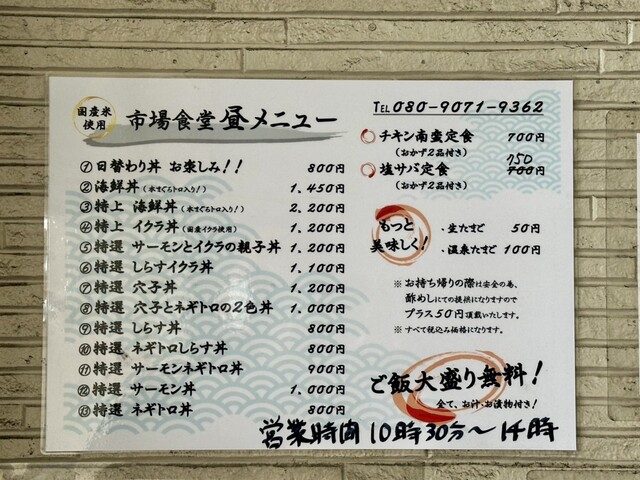 国産米
使用
市場食堂 昼メニュー
① 日替わり丼 お楽しみ!! 800円
② 海鮮丼(本まぐろトロ入り!) 1,450円
③ 特上 海鮮丼(本まぐろトロ入り!) 2,200円
④ 特上 イクラ丼(国産イクラ使用) 1,200円
⑤ 特選 サーモンとイクラの親子丼 1,200円
⑥ 特選 しらすイクラ丼 1,100円
⑦ 特選 穴子丼 1,200円
⑧ 特選 穴子とネギトロの2色丼 1,000円
⑨ 特選 しらす丼 800円
⑩ 特選 ネギトロしらす丼 800円
⑪ 特選 サーモンネギトロ丼 900円
⑫ 特選 サーモン丼 1,000円
⑬ 特選 ネギトロ丼 800円
TEL 080-9071-9362
チキン南蛮定食 700円
(おかず2品付き)
750
塩サバ定食 700円
(おかず2品付き)
もっと
美味しく!
・生たまご 50円
・温泉たまご 100円
※お持ち帰りの際は安全の為、
酢めしにての提供になりますので
プラス50円頂戴いたします。
※すべて税込み価格になります。
ご飯大盛り無料!
全て、お汁・お漬物付き!
営業時間 10時30分~14時